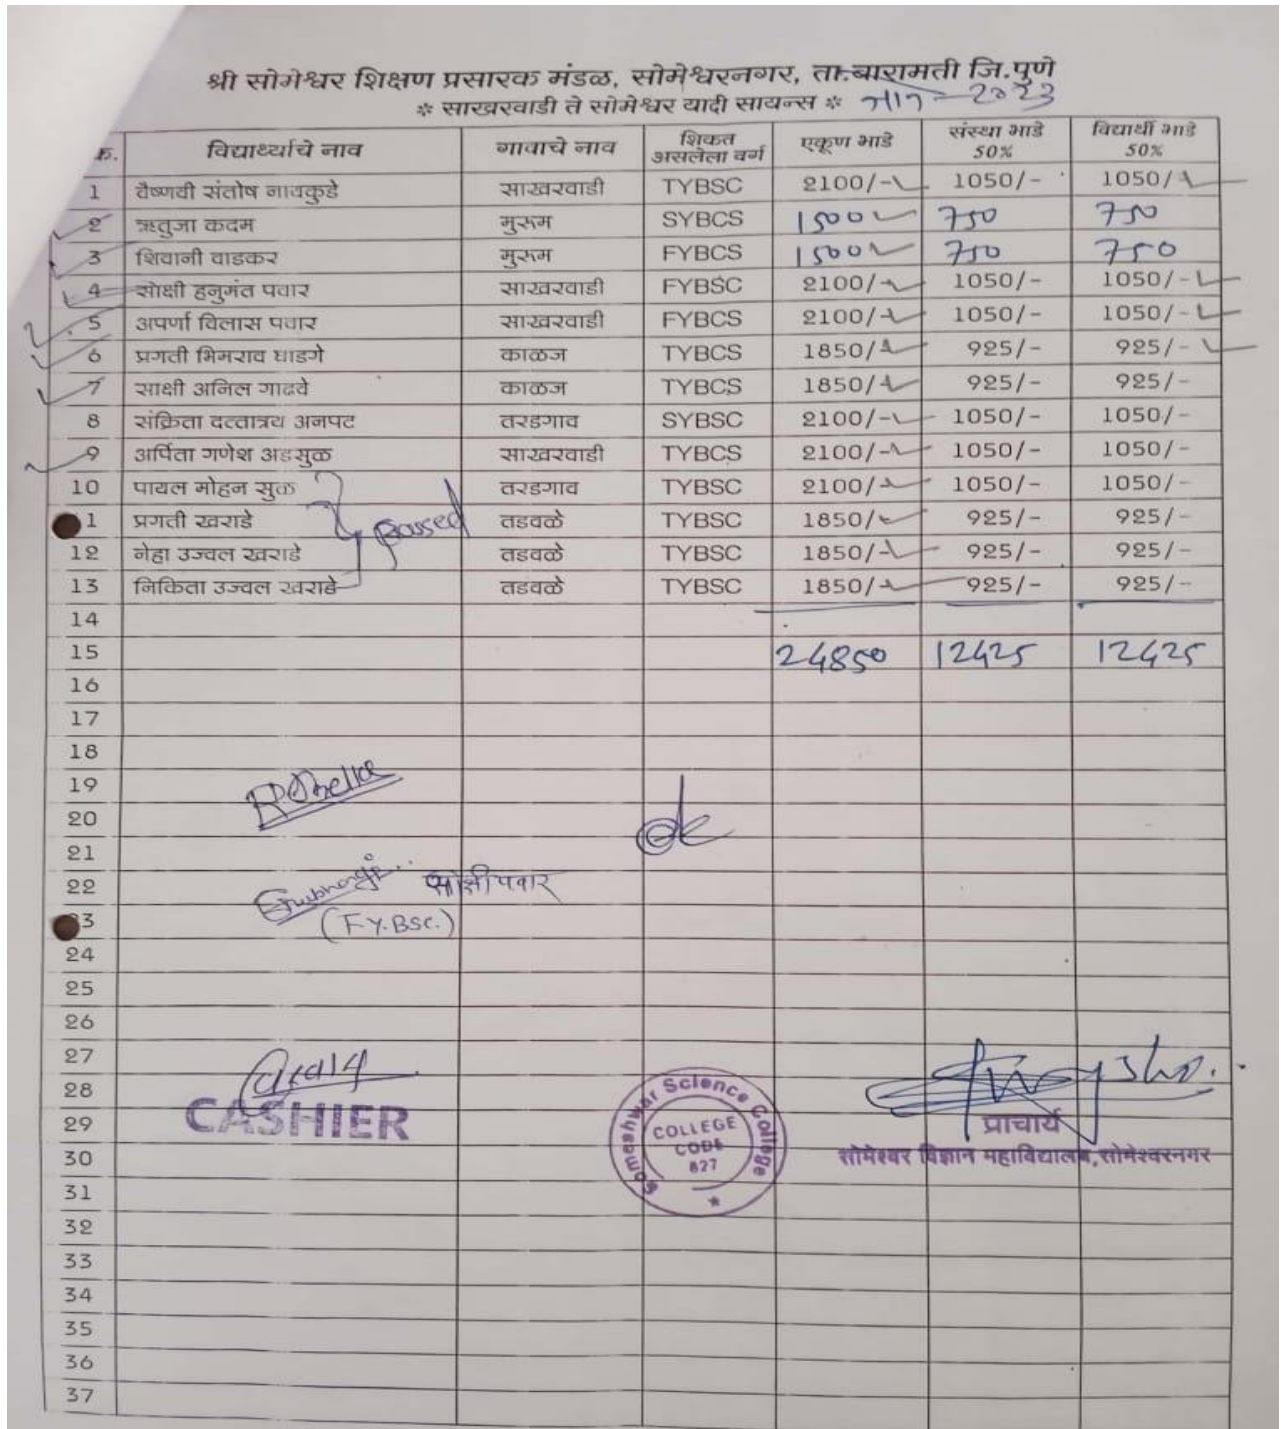 श्री सोमेश्वर शिक्षण प्रसारक मंडळ, सोमेश्वरनगर, ता.बारामती जि.पुणे
* साखरवाडी ते सोमेश्वर यादी सायन्स * मार्च - 2023
क्र. विद्यार्थ्याचे नाव गावाचे नाव शिकत असलेला वर्ग एकूण भाडे संस्था भाडे 50% विद्यार्थी भाडे 50%
1 वैष्णवी संतोष नावकुडे साखरवाडी TYBSC 2100/- 1050/- 1050/-
2 ऋतुजा कदम मुरूम SYBCS 1500 750 750
3 शिवानी वाडकर मुरूम FYBCS 1500 750 750
4 साक्षी हनुमंत पवार साखरवाडी FYBSC 2100/- 1050/- 1050/-
5 अपर्णा विलास पवार साखरवाडी FYBCS 2100/- 1050/- 1050/-
6 प्रगती भिमराव घाडगे काळज TYBCS 1850/- 925/- 925/-
7 साक्षी अनिल गाढवे काळज TYBCS 1850/- 925/- 925/-
8 संक्रिता दत्तात्रय अनपट तरडगाव SYBSC 2100/- 1050/- 1050/-
9 अर्पिता गणेश अडसुळ साखरवाडी TYBCS 2100/- 1050/- 1050/-
10 पायल मोहन सुळ तरडगाव TYBSC 2100/- 1050/- 1050/-
1 प्रगती खराडे तडवळे TYBSC 1850/- 925/- 925/-
12 नेहा उज्वल खराडे तडवळे TYBSC 1850/- 925/- 925/-
13 निकिता उज्वल खराडे तडवळे TYBSC 1850/- 925/- 925/-
14
15 24850 12425 12425
16
17
18
19
20
21
22 साक्षी पवार
3 (F.Y.BSC.)
24
25
26
27
28
CASHIER
29 प्राचार्य
30 सोमेश्वर विज्ञान महाविद्यालय, सोमेश्वरनगर
Someshwar Science College
COLLEGE
CODE
827
31
32
33
34
35
36
37